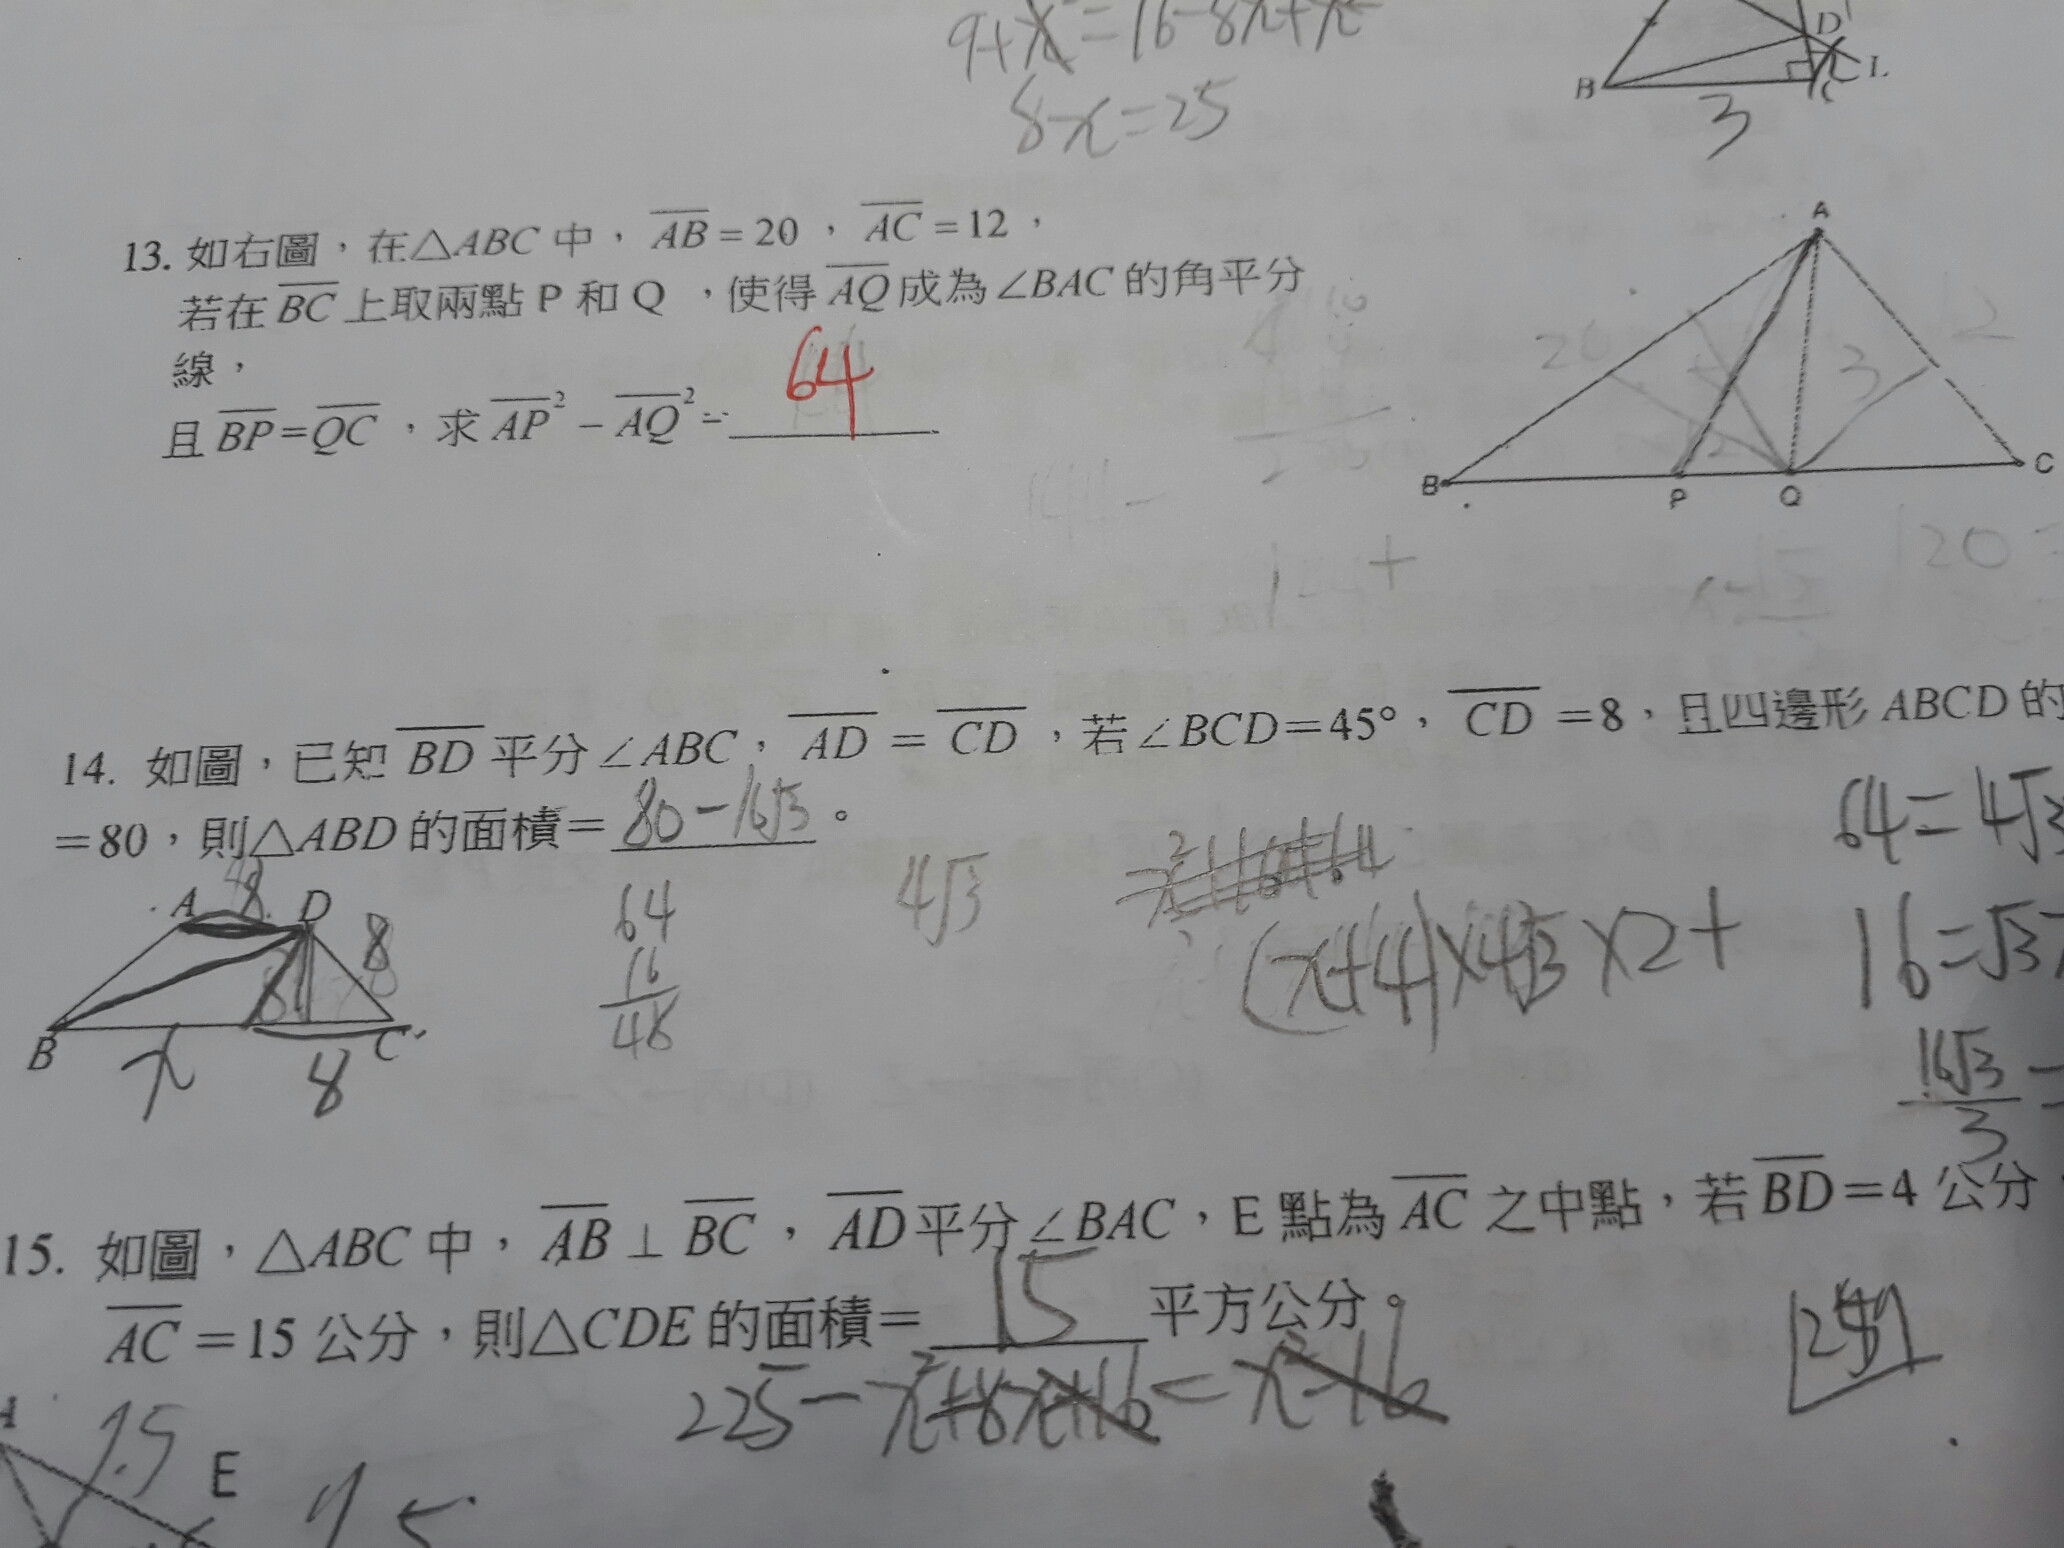 9+x²=16-8x+x²
8x=25
D
B
C
L
3
13. 如右圖，在△ABC 中，AB = 20，AC = 12，
若在 BC 上取兩點 P 和 Q ，使得 AQ 成為∠BAC 的角平分
線，
且 BP = QC ，求 AP² − AQ² = 64
A
20
3
12
B
P
Q
C
144−
144+
120
14. 如圖，已知 BD 平分∠ABC，AD = CD，若∠BCD=45°，CD =8，且四邊形 ABCD 的
=80，則△ABD 的面積= 80−16√3 。
64=4√3
A
8
D
8
B
x
8
C
64
16
48
4√3
(x+4)×4√3×2+
16=√3
16√3
3
15. 如圖，△ABC 中，AB⊥BC，AD 平分∠BAC，E 點為 AC 之中點，若 BD=4 公分
AC =15 公分，則△CDE 的面積= 15 平方公分。
225−x²+8x+16=x²−16
A
7.5
E